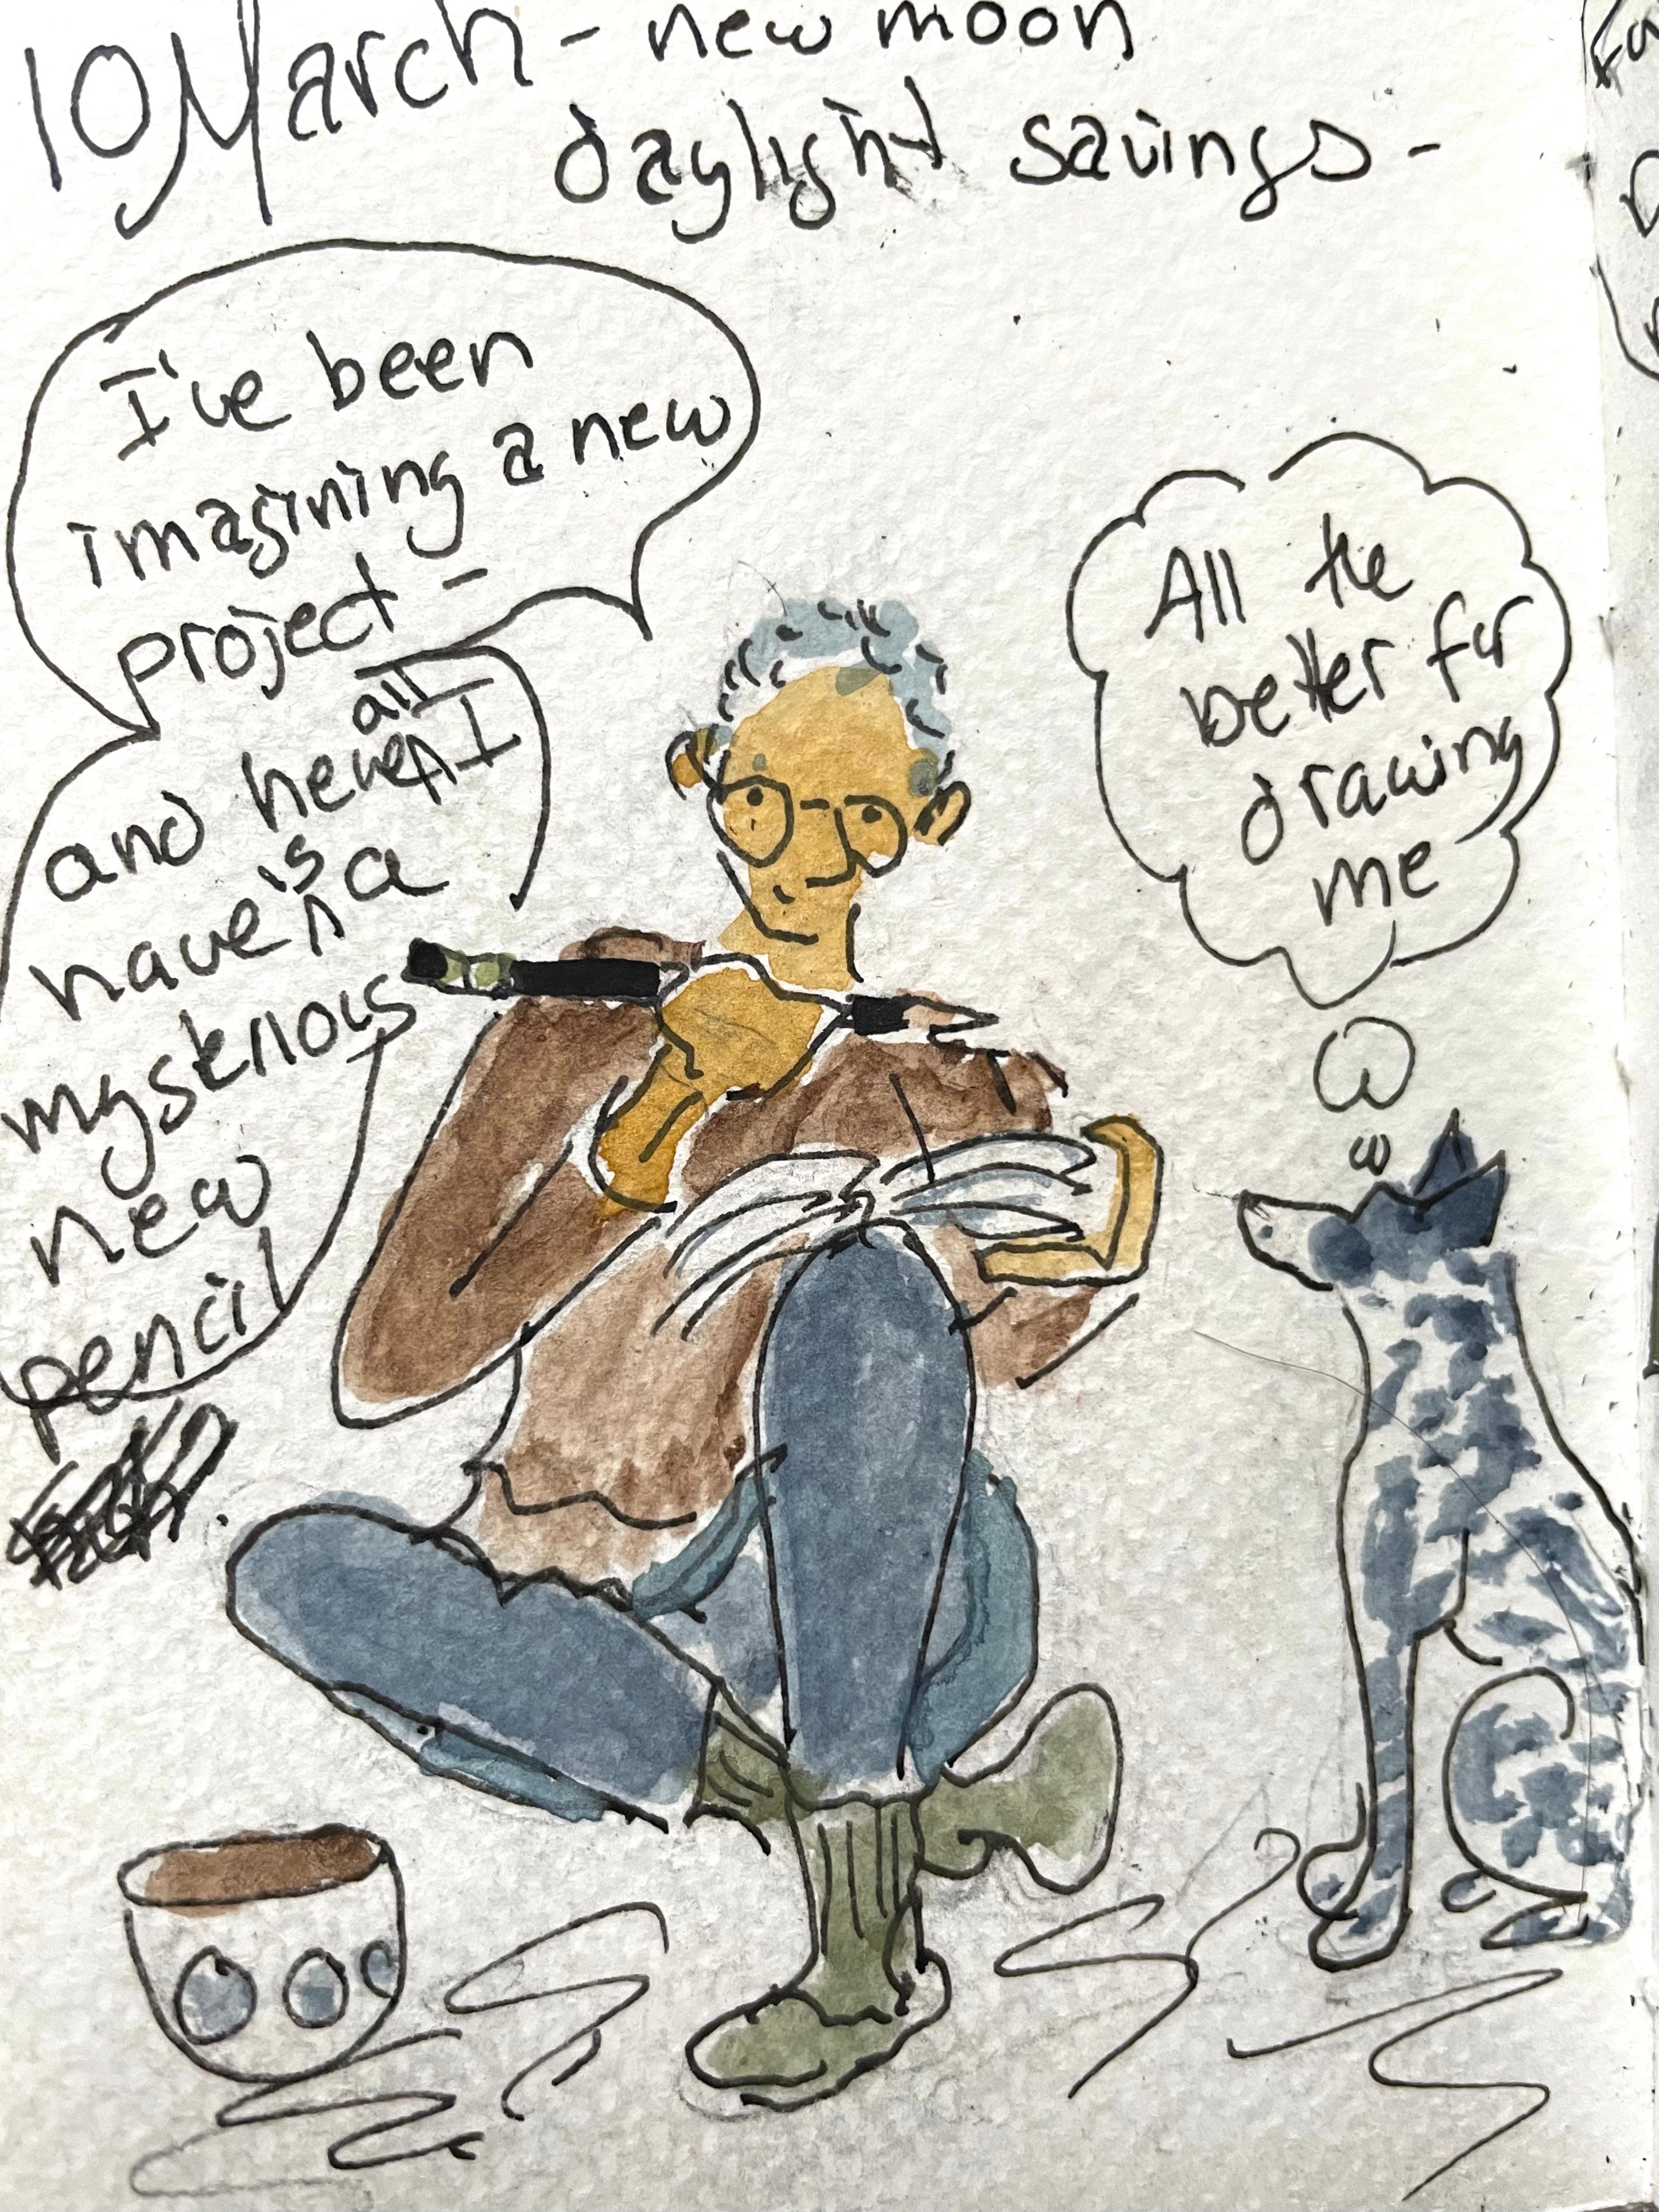 10 March - new moon
daylight savings -
I've been
imagining a new
project -
and here all I
have is a
mysterious
new
pencil
All the
better for
drawing
me